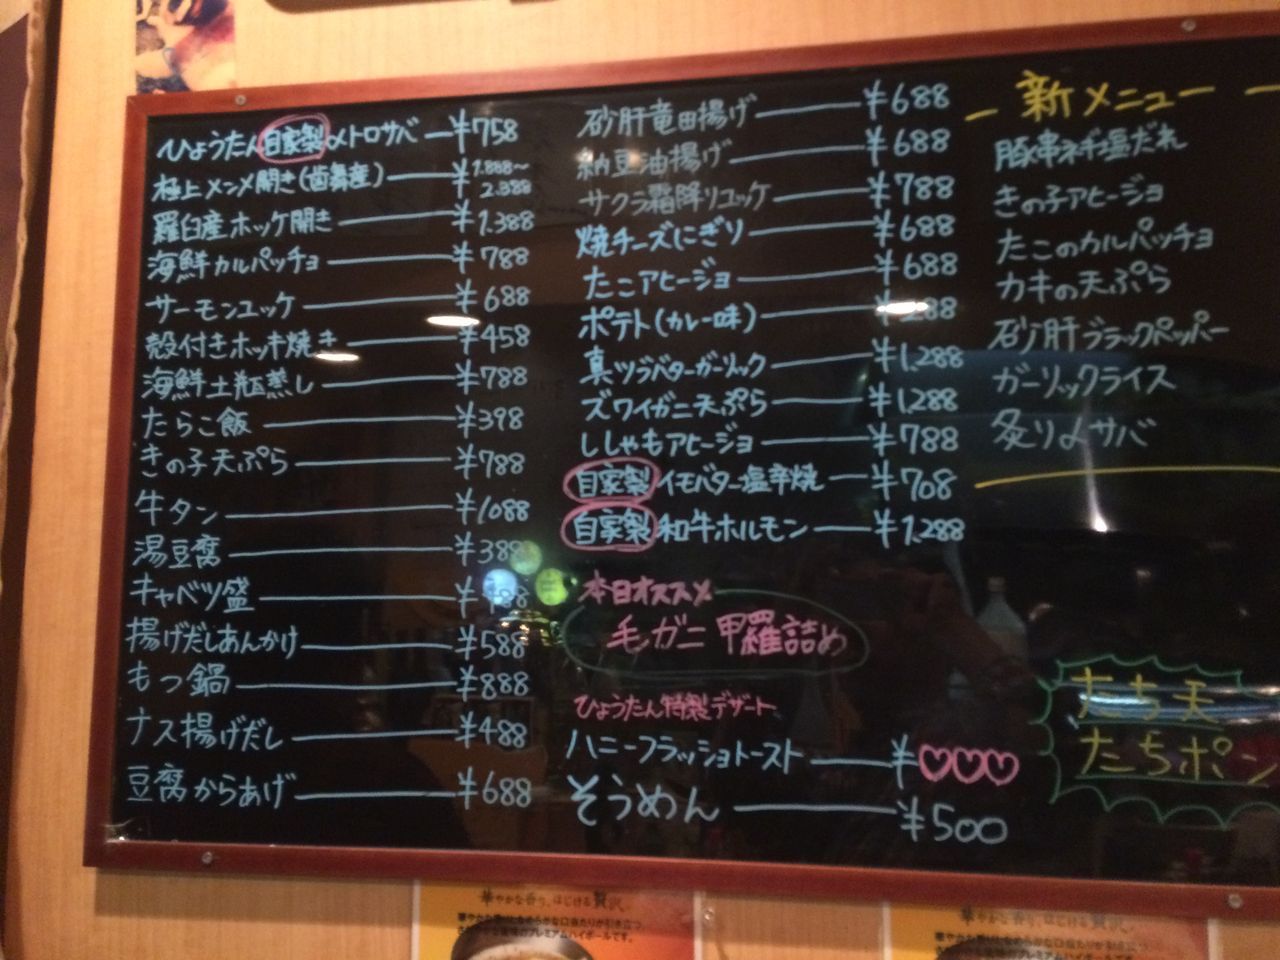 ひょうたん自家製〆トロサバ ¥758
極上メンメ開き(歯舞産) ¥1.888〜2.388
羅臼産ホッケ開き ¥1.388
海鮮カルパッチョ ¥788
サーモンユッケ ¥688
殻付きホッキ焼き ¥458
海鮮土瓶蒸し ¥788
たらこ飯 ¥398
きの子天ぷら ¥788
牛タン ¥1088
湯豆腐 ¥388
キャベツ盛
揚げだしあんかけ ¥588
もつ鍋 ¥888
ナス揚げだし ¥488
豆腐からあげ ¥688
砂肝竜田揚げ ¥688
納豆油揚げ ¥688
サクラ霜降りユッケ ¥788
焼チーズにぎり ¥688
たこアヒージョ ¥688
ポテト(カレー味)
真ツブバターガーリック ¥1,288
ズワイガニ天ぷら ¥1,288
ししゃもアヒージョ ¥788
自家製イモバター塩辛焼 ¥708
自家製和牛ホルモン ¥1,288
本日オススメ
毛ガニ 甲羅詰め
ひょうたん特製デザート
ハニーフラッショトースト ¥♡♡♡
そうめん ¥500
新メニュー
豚串ネギ塩だれ
きの子アヒージョ
たこのカルパッチョ
カキの天ぷら
砂肝ブラックペッパー
ガーリックライス
炙り〆サバ
たち天
たちポン
華やかな香り、はじける贅沢。
華やかな香りとなめらかな口当たりが引き立つ、